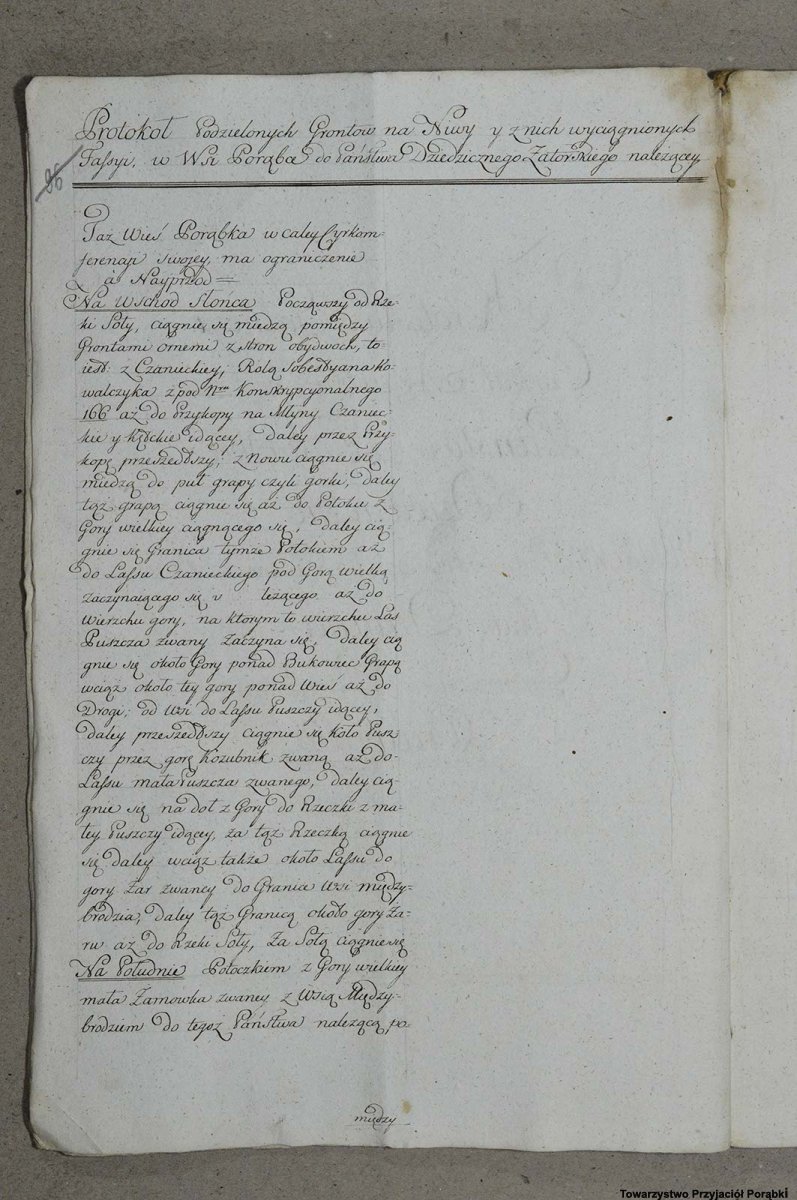 Protokoł Podzielonych Grontow na Niwy y z nich wyciągnionych
Fassyi, w Wsi Porąbce do Państwa Dziedzicznego Zatorskiego należącey
86
Taż Wieś Porąbka w całey Cyrkom-
ferencyi swojey, ma ograniczenie
à Nayprzod =
Na Wschod Słońca Począwszy od Rze-
ki Soły, ciągnie się miedzą pomiędzy
Grontami ornemi z stron obydwoch, to-
iest: z Czanieckiey, Rolą Sobestyana Ko-
walczyka z pod Nru Konskrypcyonalnego
166 aż do Przykopy na Młyny Czaniec-
kie y Kęckie idącey, daley przez Przy-
kopę przeszedłszy, z Nowu ciągnie się
miedzą do puł grapy czyli gorki, daley
tąż grapą ciągnie się aż do Potoku z
Gory wielkiey ciągnącego się, daley cią-
gnie się Granica tymże Potokiem aż
do Lassu Czanieckiego pod Gorą wielką
zaczynaiącego się y leżącego aż do
Wierzchu gory, na ktorym to wierzchu Las
Puszcza zwany zaczyna się, daley cią
gnie się około Gory ponad Bukowiec Grapą
wciąż około tey gory ponad Wieś aż do
Drogi, od Wsi do Lassu Puszczy idącey,
daley przeszedłszy ciągnie się koło Pusz
czy przez gorę Kozubnik zwaną aż do
Lassu mała Puszcza zwanego, daley cią-
gnie się na doł z Gory do Rzeczki z ma-
łey Puszczy idącey, za tąż Rzeczką ciągnie
się daley wciąż także około Lassu do
gory Żar zwaney do Granic Wsi między-
brodzia, daley tąż Granicą około gory Ża-
ru aż do Rzeki Soły, Za Sołą ciągnie się
Na Południe Potoczkiem z Gory wielkiey
mała Żarnowka zwaney z Wsią Między-
brodziem do tegoż Państwa należącą po-
między
Towarzystwo Przyjaciół Porąbki